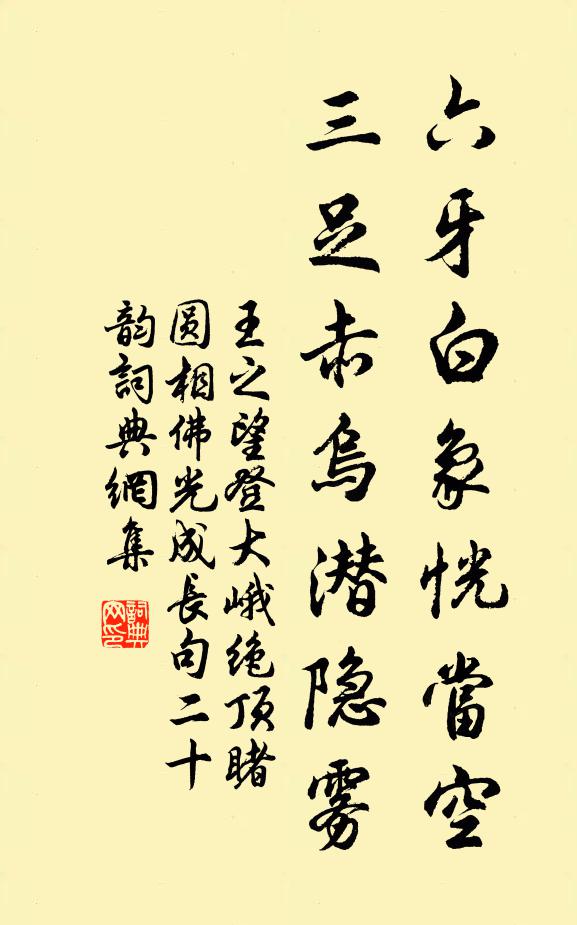 六牙白象恍當空
三足赤烏潜隐雾
王之望登大峨绝顶睹
圆相佛光成长句二十
韵詞典網集
詞典
网印